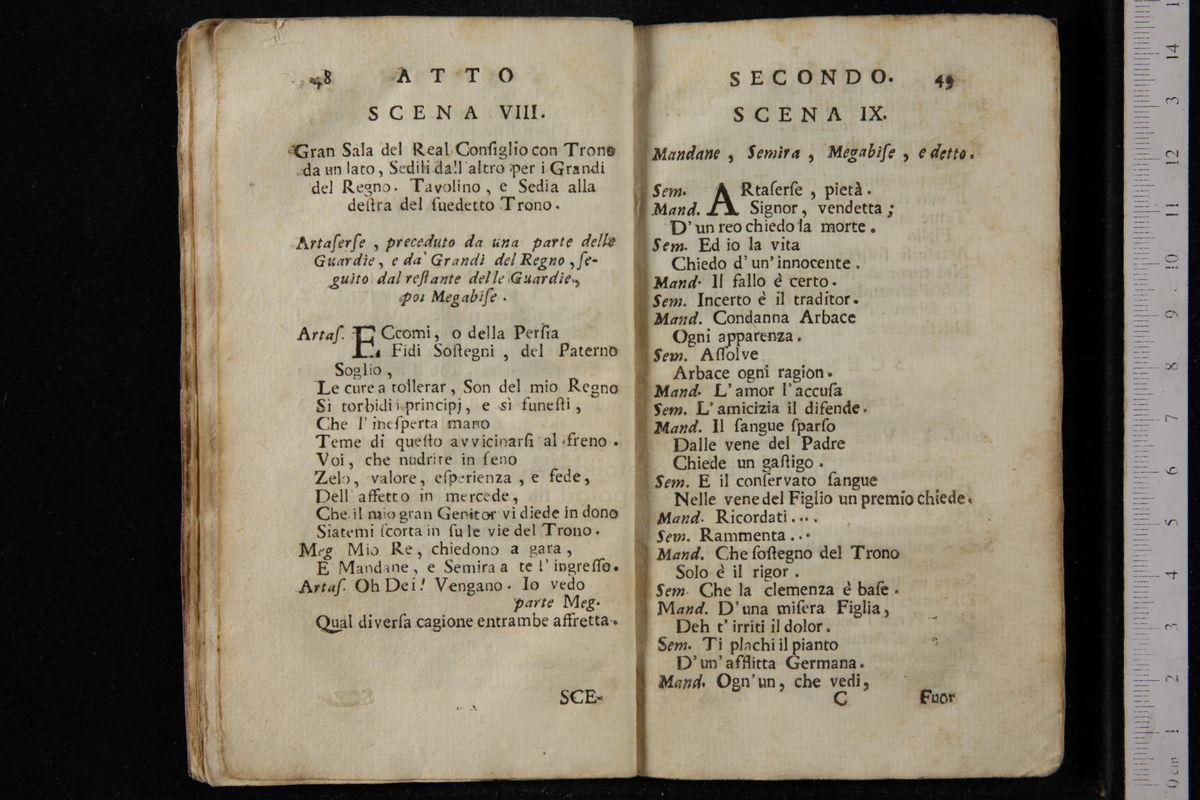 48 ATTO
SCENA VIII.
Gran Sala del Real Conſiglio con Trono
da un lato, Sedili dall'altro per i Grandi
del Regno. Tavolino, e Sedia alla
deſtra del ſuedetto Trono.
Artaſerſe, preceduto da una parte delle
Guardie, e da' Grandi del Regno, ſe-
guito dal reſtante delle Guardie,
poi Megabiſe.
Artaſ. ECcomi, o della Perſia
Fidi Soſtegni, del Paterno
Soglio,
Le cure a tollerar, Son del mio Regno
Si torbidi i principj, e sì funeſti,
Che l'ineſperta mano
Teme di queſto avvicinarſi al freno.
Voi, che nudrite in ſeno
Zelo, valore, eſperienza, e fede,
Dell'affetto in mercede,
Che il mio gran Genitor vi diede in dono
Siatemi ſcorta in ſu le vie del Trono.
Meg Mio Re, chiedono a gara,
E Mandane, e Semira a te l'ingreſſo.
Artaſ. Oh Dei! Vengano. Io vedo
parte Meg.
Qual diverſa cagione entrambe affretta.
SCE-
SECONDO. 49
SCENA IX.
Mandane, Semira, Megabiſe, e detto.
Sem. ARtaſerſe, pietà.
Mand. Signor, vendetta;
D'un reo chiedo la morte.
Sem. Ed io la vita
Chiedo d'un'innocente.
Mand. Il fallo è certo.
Sem. Incerto è il traditor.
Mand. Condanna Arbace
Ogni apparenza.
Sem. Aſſolve
Arbace ogni ragion.
Mand. L'amor l'accuſa
Sem. L'amicizia il difende.
Mand. Il ſangue ſparſo
Dalle vene del Padre
Chiede un gaſtigo.
Sem. E il conſervato ſangue
Nelle vene del Figlio un premio chiede.
Mand. Ricordati....
Sem. Rammenta...
Mand. Che ſoſtegno del Trono
Solo è il rigor.
Sem. Che la clemenza è baſe.
Mand. D'una miſera Figlia,
Deh t'irriti il dolor.
Sem. Ti plachi il pianto
D'un'afflitta Germana.
Mand. Ogn'un, che vedi,
C Fuor
0 cm 1 2 3 4 5 6 7 8 9 10 11 12 3 14 1